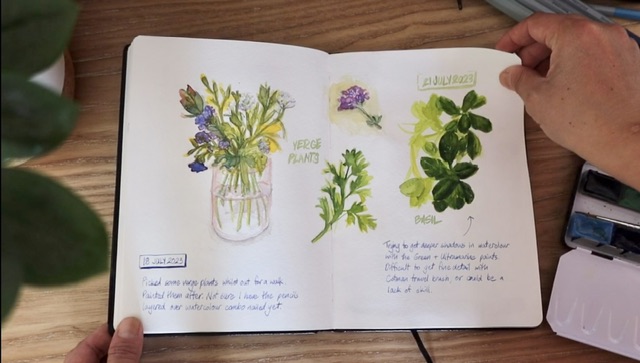 VERGE
PLANTS
19 JULY 2023
Picked some verge plants whilst out for a walk.
Painted them after. Not sure I have the pencils
layered over watercolour combo nailed yet.
21 JULY 2023
BASIL
Trying to get deeper shadows in watercolour
with the Green + Ultramarine paints.
Difficult to get fine detail with
Cotman travel brush, or could be a
lack of skill.